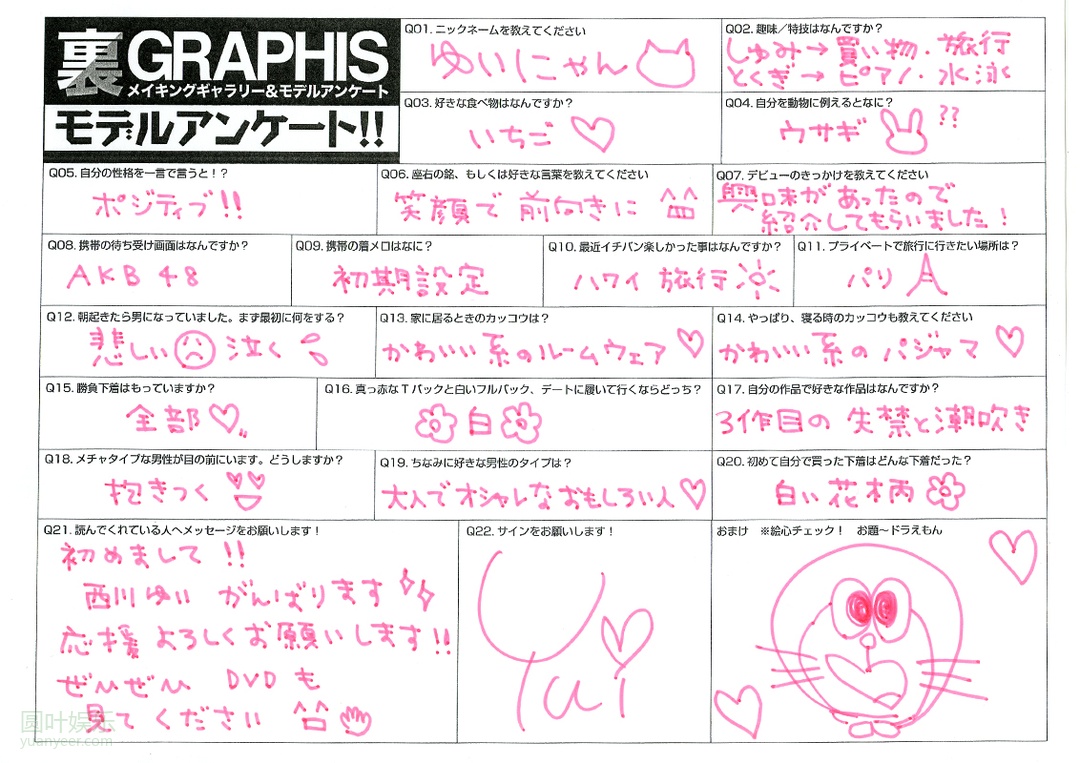 裏GRAPHIS
メイキングギャラリー&モデルアンケート
モデルアンケート!!
Q01. ニックネームを教えてください
ゆいにゃん
Q02. 趣味／特技はなんですか？
しゅみ→買い物・旅行
とくぎ→ピアノ・水泳
Q03. 好きな食べ物はなんですか？
いちご
Q04. 自分を動物に例えるとなに？
ウサギ ??
Q05. 自分の性格を一言で言うと！？
ポジティブ!!
Q06. 座右の銘、もしくは好きな言葉を教えてください
笑顔で 前向きに
Q07. デビューのきっかけを教えてください
興味があったので
紹介してもらいました！
Q08. 携帯の待ち受け画面はなんですか？
AKB 48
Q09. 携帯の着メロはなに？
初期設定
Q10. 最近イチバン楽しかった事はなんですか？
ハワイ 旅行
Q11. プライベートで旅行に行きたい場所は？
パリ
Q12. 朝起きたら男になっていました。まず最初に何をする？
悲しい 泣く
Q13. 家に居るときのカッコウは？
かわいい系のルームウェア
Q14. やっぱり、寝る時のカッコウも教えてください
かわいい系の パジャマ
Q15. 勝負下着はもっていますか？
全部
Q16. 真っ赤なTバックと白いフルバック、デートに履いて行くならどっち？
白
Q17. 自分の作品で好きな作品はなんですか？
3作目の 失禁と潮吹き
Q18. メチャタイプな男性が目の前にいます。どうしますか？
抱きつく
Q19. ちなみに好きな男性のタイプは？
大人でオシャレなおもしろい人
Q20. 初めて自分で買った下着はどんな下着だった？
白い花柄
Q21. 読んでくれている人へメッセージをお願いします！
初めまして !!
西川ゆい がんばります
応援よろしくお願いします!!
ぜひぜひ DVDも
見てください
Q22. サインをお願いします！
Yui
おまけ ※絵心チェック！ お題〜ドラえもん
圆叶娱乐
yuanyeer.com